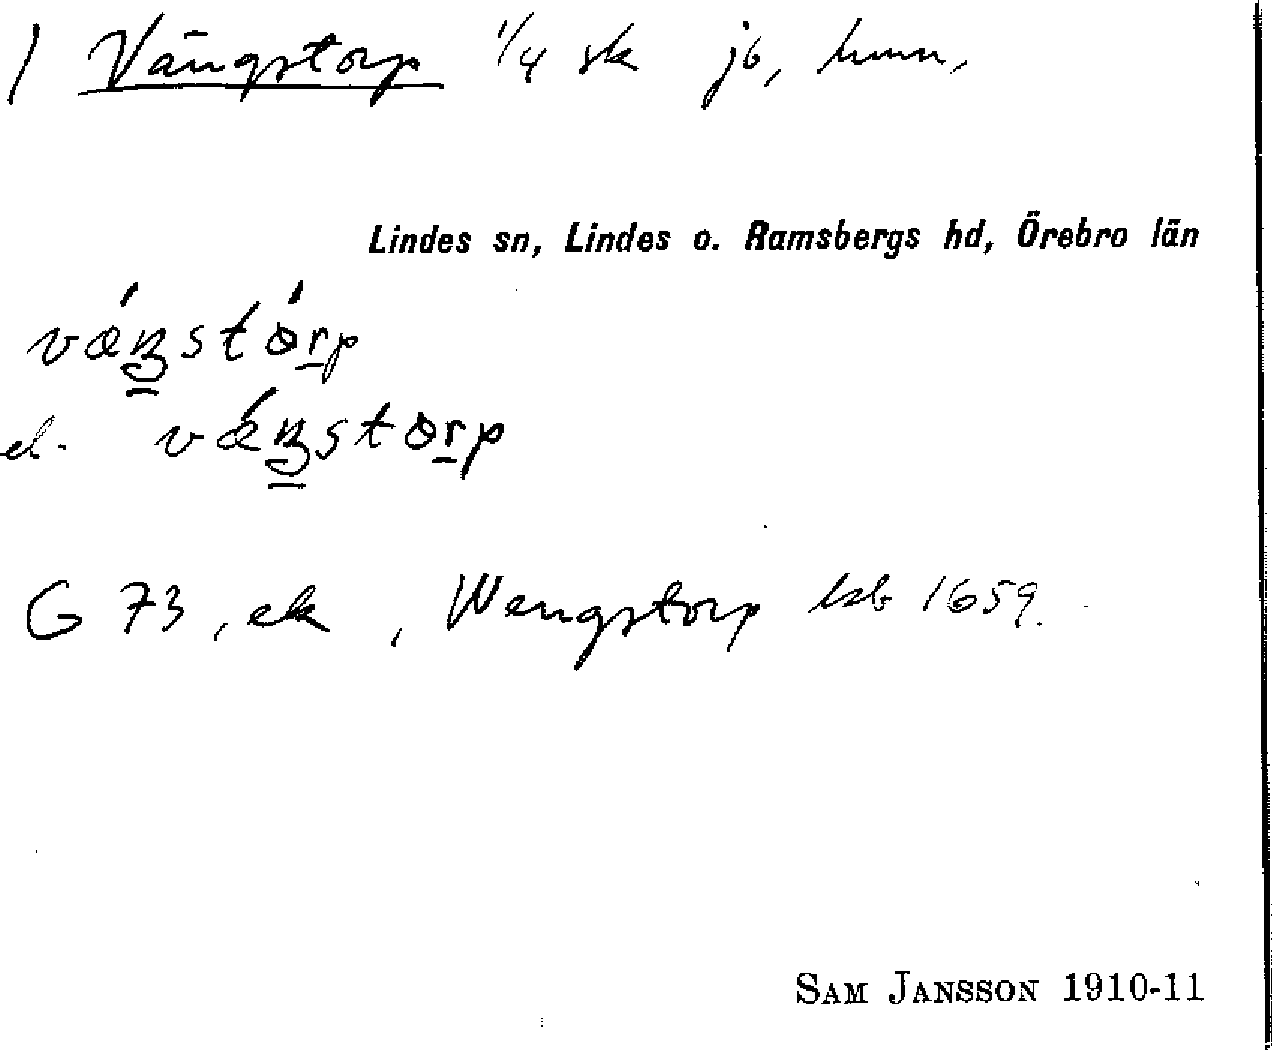 ) Vängstorp 1/4 sk jb, hmn,
Lindes sn, Lindes o. Ramsbergs hd, Örebro län
vǽŋstórp
el. vǽŋstorp
G 73, ek, Wengstorp 1659.
SAM JANSSON 1910-11